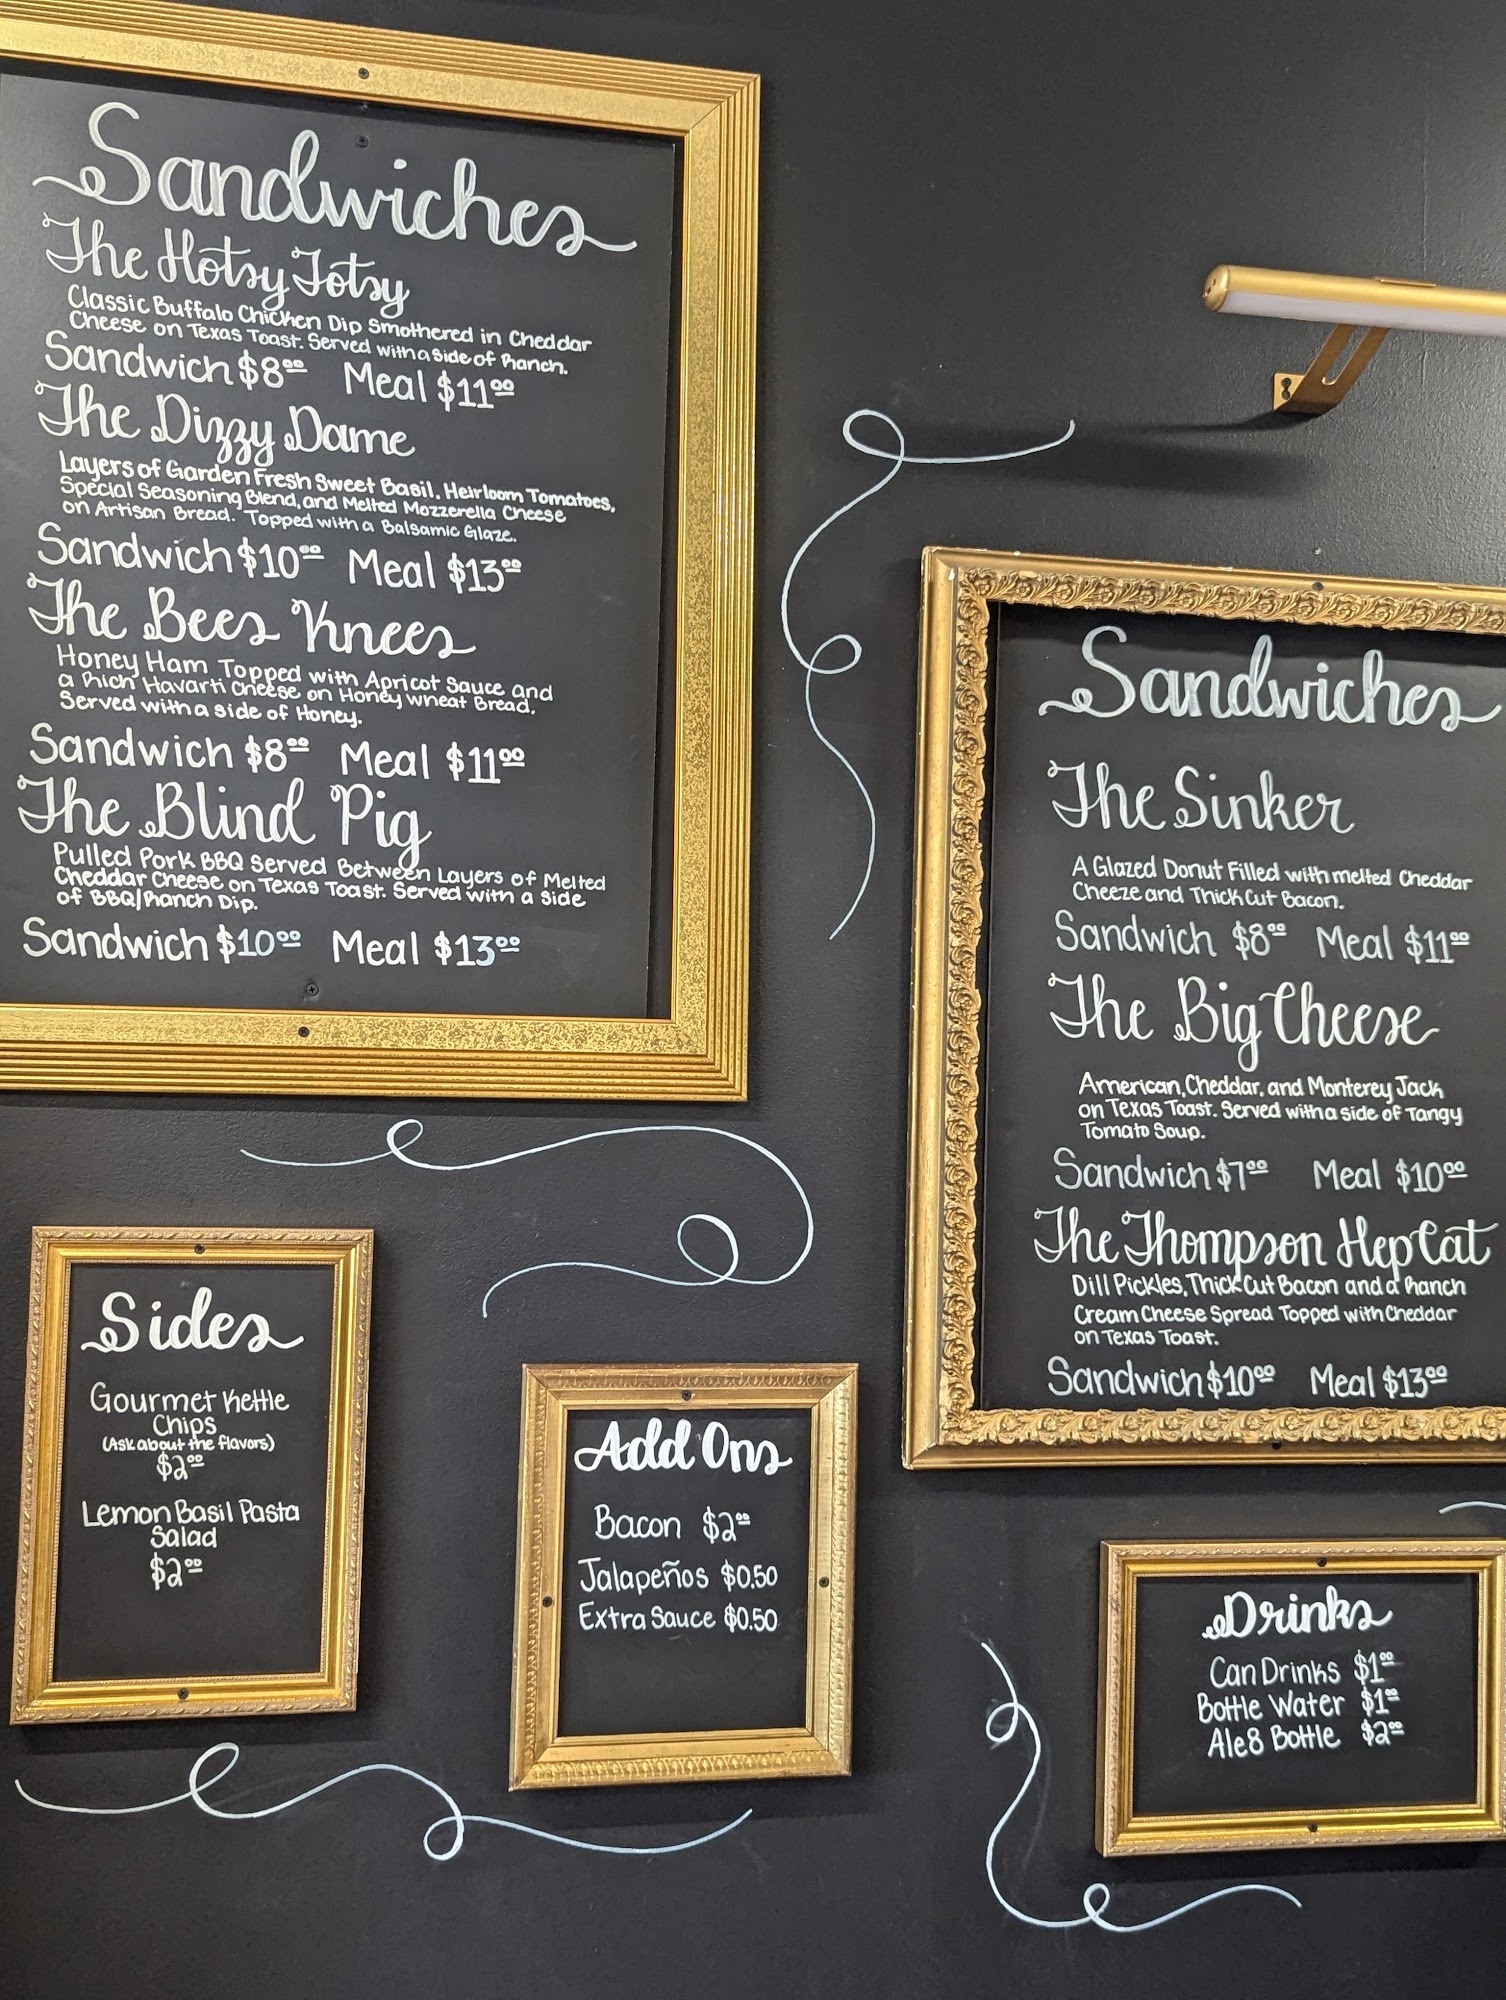 Sandwiches
The Hotsy Totsy
Classic Buffalo Chicken Dip Smothered in Cheddar
Cheese on Texas Toast. Served with a side of Ranch.
Sandwich $8.00 Meal $11.00
The Dizzy Dame
Layers of Garden Fresh Sweet Basil, Heirloom Tomatoes,
Special Seasoning Blend, and Melted Mozzerella Cheese
on Artisan Bread. Topped with a Balsamic Glaze.
Sandwich $10.00 Meal $13.00
The Bees Knees
Honey Ham Topped with Apricot Sauce and
a Rich Havarti Cheese on Honey Wheat Bread.
Served with a side of Honey.
Sandwich $8.00 Meal $11.00
The Blind Pig
Pulled Pork BBQ Served Between Layers of Melted
Cheddar Cheese on Texas Toast. Served with a side
of BBQ/Ranch Dip.
Sandwich $10.00 Meal $13.00
Sandwiches
The Sinker
A Glazed Donut Filled with melted Cheddar
Cheeze and Thick Cut Bacon.
Sandwich $8.00 Meal $11.00
The Big Cheese
American, Cheddar, and Monterey Jack
on Texas Toast. Served with a side of Tangy
Tomato Soup.
Sandwich $7.00 Meal $10.00
The Thompson Hep Cat
Dill Pickles, Thick Cut Bacon and a Ranch
Cream Cheese Spread Topped with Cheddar
on Texas Toast.
Sandwich $10.00 Meal $13.00
Sides
Gourmet Kettle
Chips
(Ask about the flavors)
$2.00
Lemon Basil Pasta
Salad
$2.00
Add Ons
Bacon $2.00
Jalapeños $0.50
Extra Sauce $0.50
Drinks
Can Drinks $1.00
Bottle Water $1.00
Ale8 Bottle $2.00